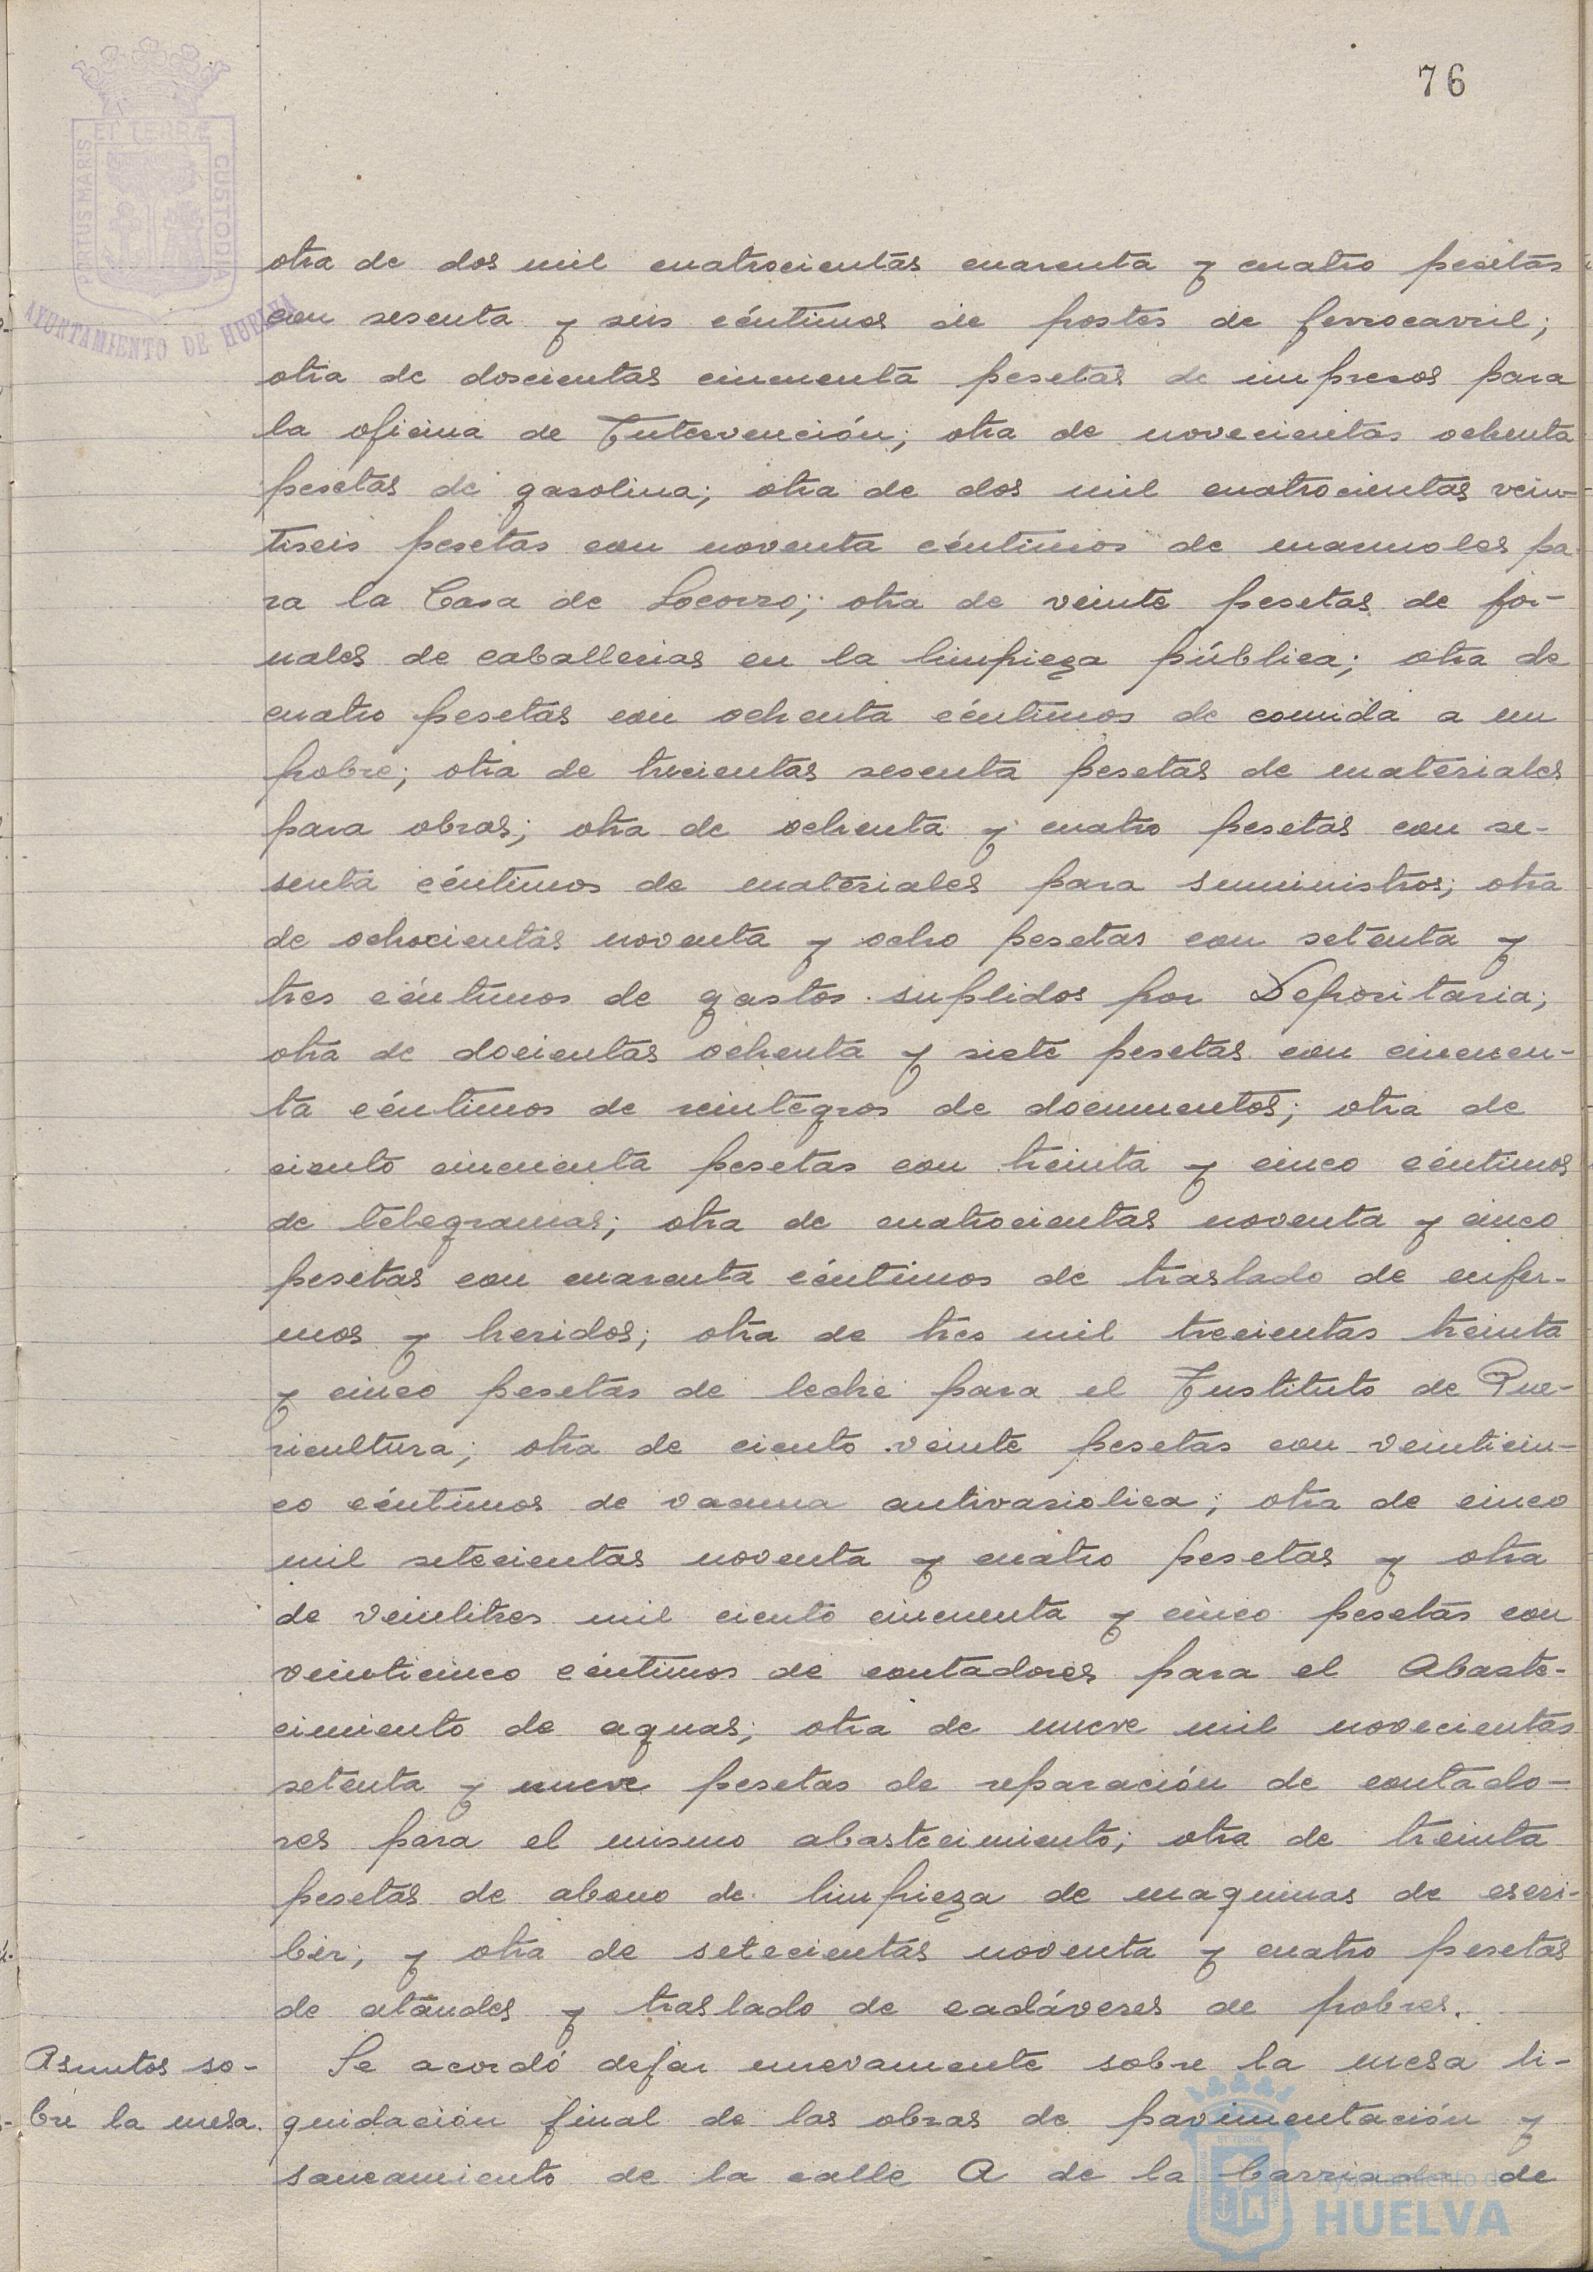 76
PORTUS MARIS ET TERRÆ CUSTODIA
AYUNTAMIENTO DE HUELVA
otra de dos mil cuatrocientas cuarenta y cuatro pesetas
con sesenta y seis céntimos de postes de ferrocarril;
otra de doscientas cincuenta pesetas de impresos para
la oficina de Intervención; otra de novecientas ochenta
pesetas de gasolina; otra de dos mil cuatrocientas vein-
tiseis pesetas con noventa céntimos de marmoles pa-
ra la Casa de Socorro; otra de veinte pesetas de jor-
nales de caballerias en la limpieza pública; otra de
cuatro pesetas con ochenta céntimos de comida a un
pobre; otra de trecientas sesenta pesetas de materiales
para obras; otra de ochenta y cuatro pesetas con se-
senta céntimos de materiales para suministros; otra
de ochocientas noventa y ocho pesetas con setenta y
tres céntimos de gastos suplidos por Depositaria;
otra de docientas ochenta y siete pesetas con cincuen-
ta céntimos de reintegros de documentos; otra de
ciento cincuenta pesetas con treinta y cinco céntimos
de telegramas; otra de cuatrocientas noventa y cinco
pesetas con cuarenta céntimos de traslado de enfer-
mos y heridos; otra de tres mil trecientas treinta
y cinco pesetas de leche para el Instituto de Pue-
ricultura; otra de ciento veinte pesetas con veinticin-
co céntimos de vacuna antivariolica; otra de cinco
mil setecientas noventa y cuatro pesetas y otra
de veintitres mil ciento cincuenta y cinco pesetas con
veinticinco céntimos de contadores para el Abaste-
cimiento de aguas; otra de nueve mil novecientas
setenta y nueve pesetas de reparación de contado-
res para el mismo abastecimiento; otra de treinta
pesetas de abono de limpieza de maquinas de escri-
bir; y otra de setecientas noventa y cuatro pesetas
de ataudes y traslado de cadáveres de pobres.
Asuntos so-
bre la mesa.
Se acordó dejar nuevamente sobre la mesa li-
quidación final de las obras de pavimentación y
saneamiento de la calle A de la barriada de
Ayuntamiento de
HUELVA